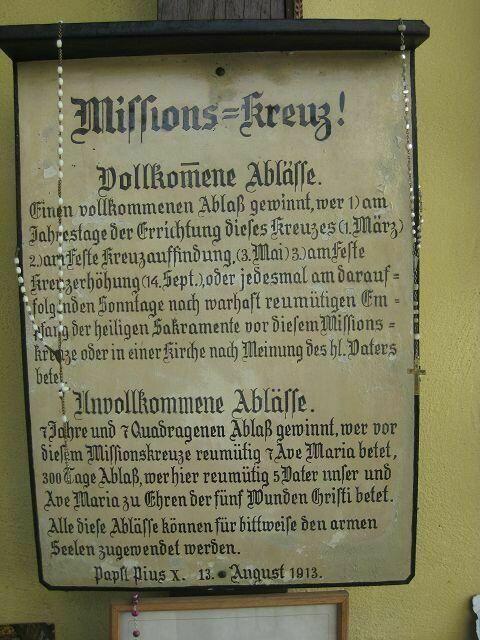 Missions=Kreuz!
Vollkom̅ene Ablässe.
Einen vollkommenen Ablaß gewinnt, wer 1) am
Jahrestage der Errichtung dieses Kreuzes (1. März)
2.) am Feste Kreuzauffindung, (3. Mai) 3.) am Feste
Kreuzerhöhung (14. Sept.), oder jedesmal am darauf=
folgenden Sonntage nach warhaft reumütigen Em=
pfang der heiligen Sakramente vor diesem Missions=
kreuze oder in einer Kirche nach Meinung des hl. Vaters
betet.
Unvollkommene Ablässe.
7 Jahre und 7 Quadragenen Ablaß gewinnt, wer vor
diesem Missionskreuze reumütig 7 Ave Maria betet,
300 Tage Ablaß, wer hier reumütig 5 Vater unser und
Ave Maria zu Ehren der fünf Wunden Christi betet.
Alle diese Ablässe können für bittweise den armen
Seelen zugewendet werden.
Papst Pius X. 13. August 1913.